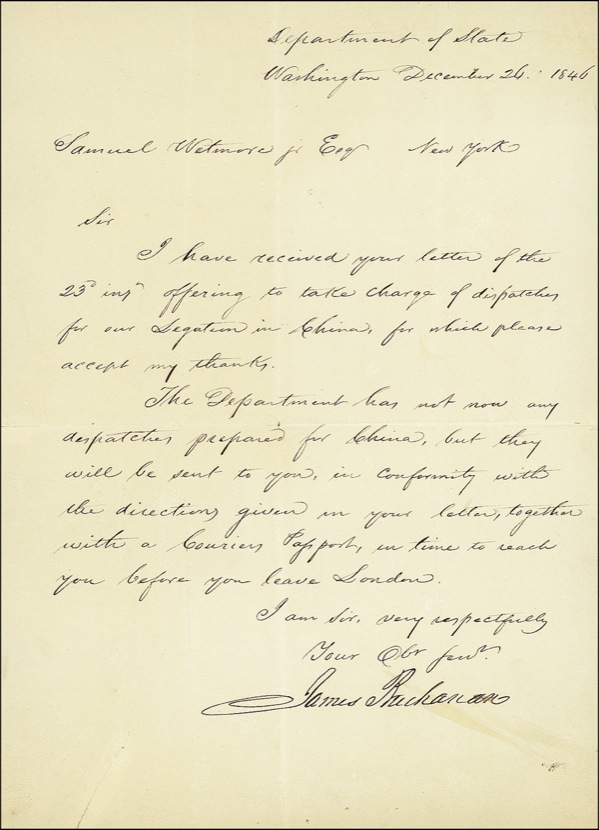 Department of State
Washington December 26. 1846
Samuel Wetmore jr Esqr New York
Sir
I have received your letter of the
23d inst offering to take charge of dispatches
for our Legation in China, for which please
accept my thanks.
The Department has not now any
dispatches prepared for China, but they
will be sent to you, in conformity with
the directions given in your letter, together
with a Couriers Passport, in time to reach
you before you leave London.
I am Sir, very respectfully
Your Obt servt.
James Buchanan